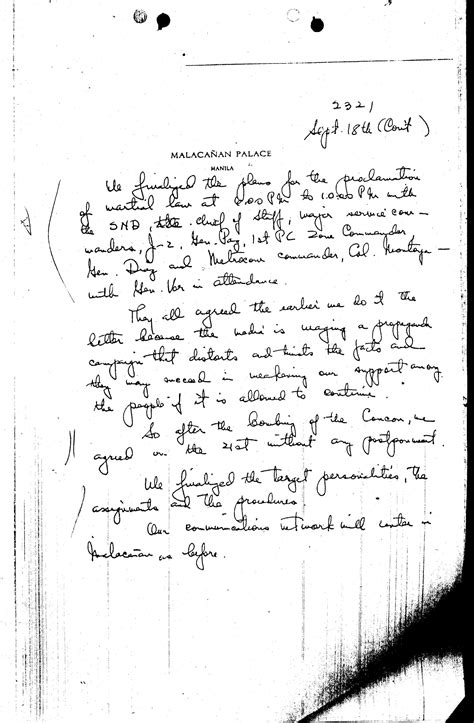 2321
Sept. 18th (Con't)
MALACAÑAN PALACE
MANILA
We finalized the plans for the proclamation
of martial law at 8:00 PM to 10:00 PM with
the SND, the chief of staff, major service com-
manders, J-2, Gen. Paz, 1st PC Zone Commander,
Gen. Diaz and Metrocom commander, Col. Montoya
with Gen. Ver in attendance.
They all agreed the earlier we do it the
better because the media is waging a propaganda
campaign that distorts and twists the facts and
they may succeed in weakening our support among
the people if it is allowed to continue.
So after the bombing of the Concon, we
agreed on the 21st without any postponement.
We finalized the target personalities, the
assignments and the procedures.
Our communications network will center in
Malacañan as before.